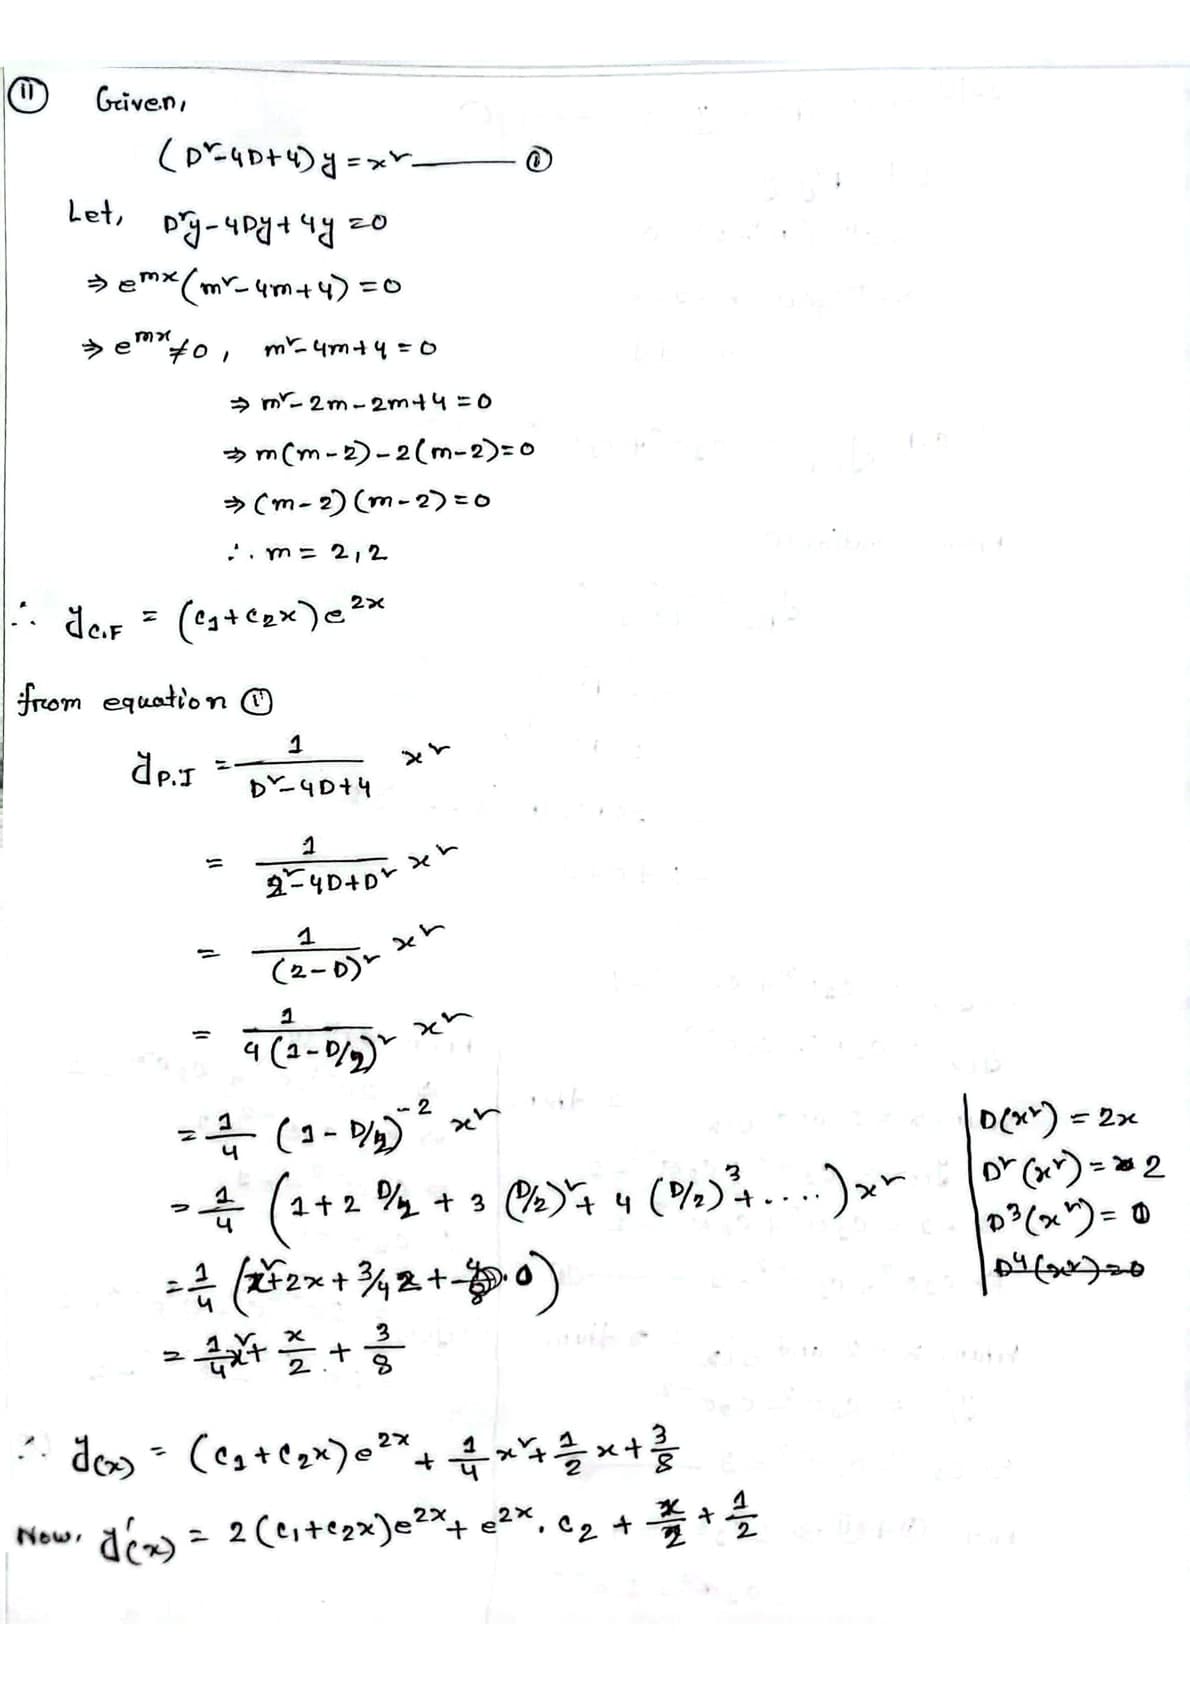 (ii) Given,
(D² - 4D + 4) y = x² ——— (i)
Let, D²y - 4Dy + 4y = 0
⇒ e^{mx} (m² - 4m + 4) = 0
⇒ e^{mx} ≠ 0, m² - 4m + 4 = 0
⇒ m² - 2m - 2m + 4 = 0
⇒ m(m - 2) - 2(m - 2) = 0
⇒ (m - 2) (m - 2) = 0
∴ m = 2, 2
∴ y_{C.F} = (c₁ + c₂x) e^{2x}
from equation (ii)
y_{P.I} = 1/(D² - 4D + 4) x²
= 1/(2² - 4D + D²) x²
= 1/(2 - D)² x²
= 1/(4(1 - D/2)²) x²
= 1/4 (1 - D/2)^{-2} x²
= 1/4 (1 + 2 D/2 + 3 (D/2)² + 4 (D/2)³ + ....) x²
= 1/4 (x² + 2x + 3/4 2 + 4/8 . 0)
= 1/4 x² + x/2 + 3/8
D(x²) = 2x
D²(x²) = 2
D³(x²) = 0
D⁴(x²) = 0
∴ y(x) = (c₁ + c₂x) e^{2x} + 1/4 x² + 1/2 x + 3/8
Now, y'(x) = 2(c₁ + c₂x) e^{2x} + e^{2x} . c₂ + x/2 + 1/2